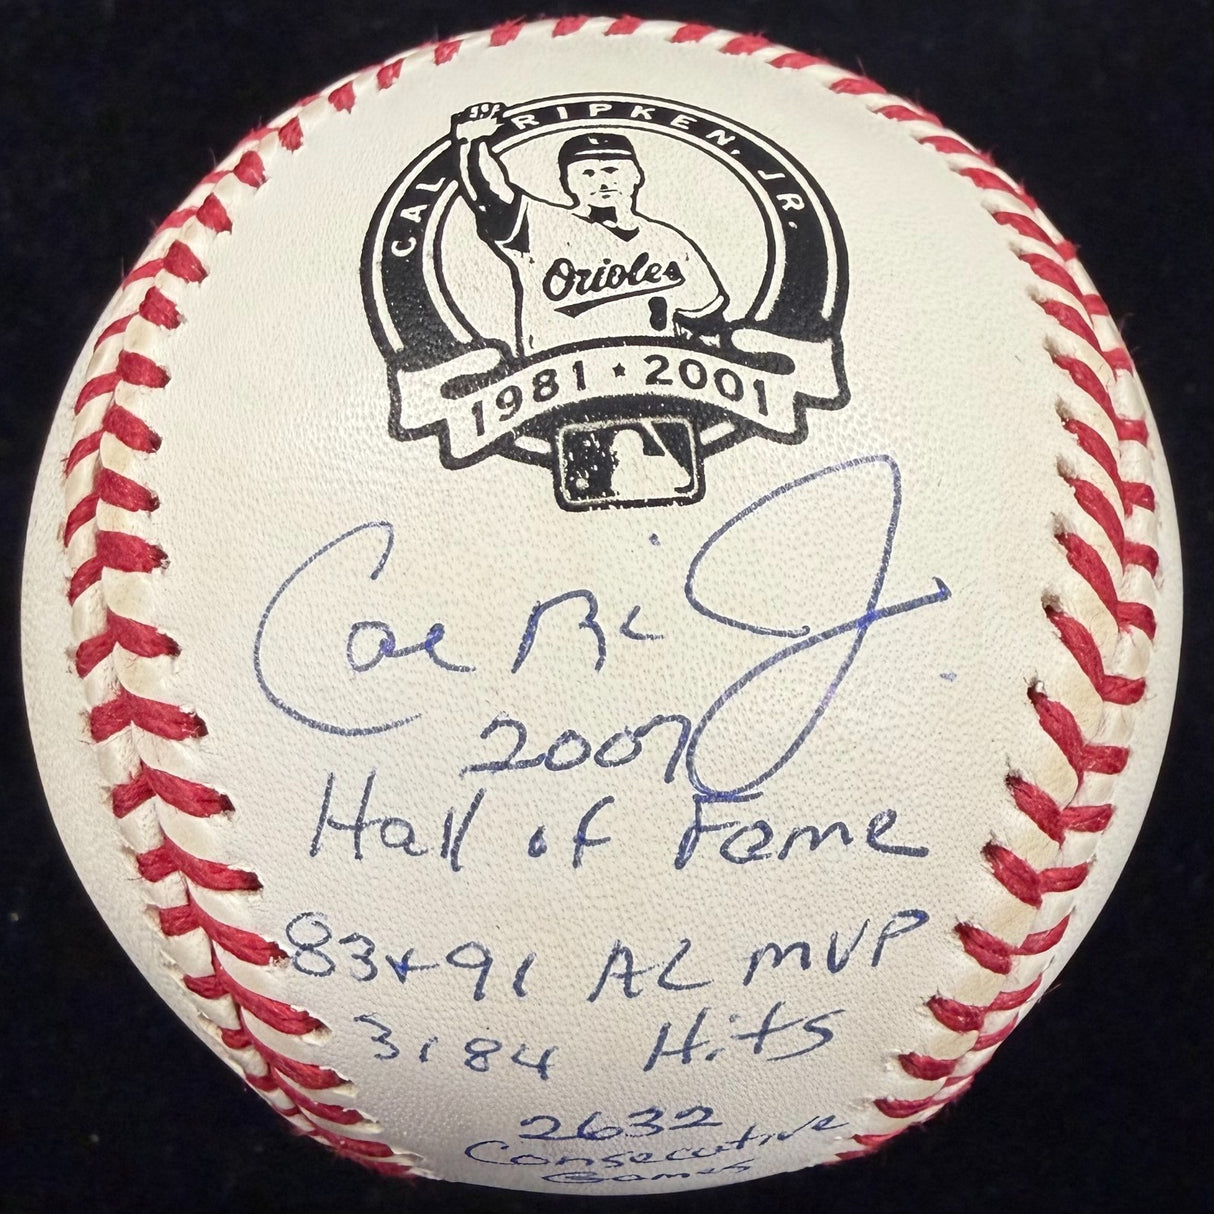 CAL RIPKEN, JR.
Orioles
8
1981 ★ 2001
Cal Ri Jr.
2007
Hall of Fame
83+91 AL MVP
3184 Hits
2632
Consecutive
Games